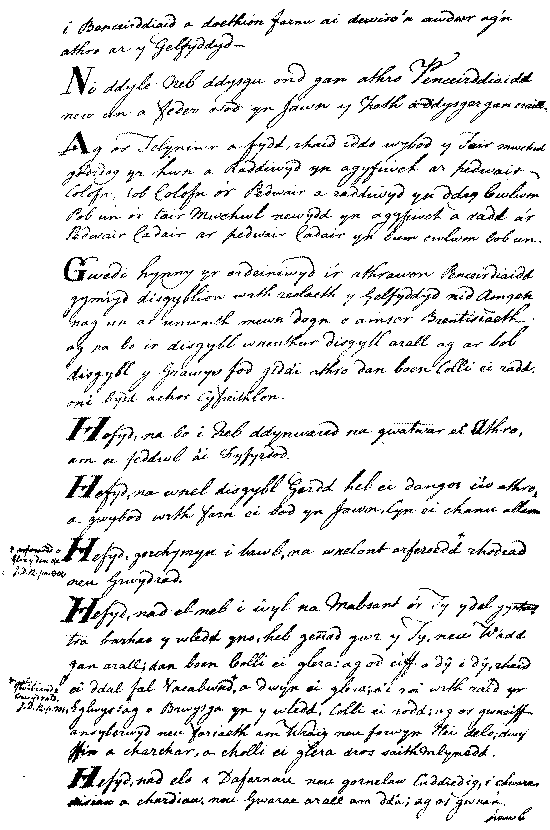 i Benceirddiaid a doethion farnu ai dewiso'n awdwr ag'n
athro ar y Gelfyddyd—
Ni ddyle Neb ddysgu ond gan athro Penceirddiaidd
new un a feder riod yn Jawn y
Ag or Telyniwr a fydd, rhaid iddo wybod y Tair mwchwl
yr hwn a Raddiwyd yn agyfuwch ar pedwair
Colofn, bob Colofn or Pedwair a raddiwyd yn ddeg Cwlwm
Pob un ir tair Mwchwl newydd yn agyfuwch a radd a'r
Pedwair Cadair ar pedwair Cadair yn bum cwlwm bob un.
Gwedi hynny yr ordeiniwyd i'r athrawon Penceirddiaidd
gymryd disgyblion wrth reolaeth y Gelfyddyd nid Amgen
nag un ar unwaith mewn dogn o amser Brentisiaeth
ag na bo ir disgybl wneuthur disgybl arall ag ar bob
disgybl y Grawys fod gida'i athro dan boen Colli ei radd.
oni bydd achos Cyfreithlon.
Hefyd, na bo i Neb ddynwared na gwatwar ei Athro,
am ei feddwl a'i fyfyrdod.
Hefyd, na wnel disgybl Gerdd heb ei dangos i'w athro,
a gwybod wrth farn ei bod yn Jawn, Cyn ei chanu allan
Hefyd, gorchymyn i bawb, na wnelont arferoedd rhodiad
neu Grwydrad.
Hefyd, nad el neb i wyl na Mabsant o'r Ty y del
tra barhao y wledd yno, heb genad gwr y Ty, neu Wadd
gan arall; dan boen Colli ei glera: ag od eiff o dŷ i dŷ, rhaid
ei ddal fal Vacabwnd, a dwyn ei glera; a'i roi wrth raid yr
Eglwys: ag o Brwysga yn y wledd, Colli ei rodd; ag os gwneiff
ansyberwyd neu foriaeth am Wraig neu forwyn lle i delo, dwy
ffin a charchar, a cholli ei glera dros saith mlynedd.
Hefyd, nad elo i Dafarnau neu gornelau Cuddiedig, i chwarae
disiau a chardiau, neu Gwarae arall am dda; ag os gwnan
i bawb